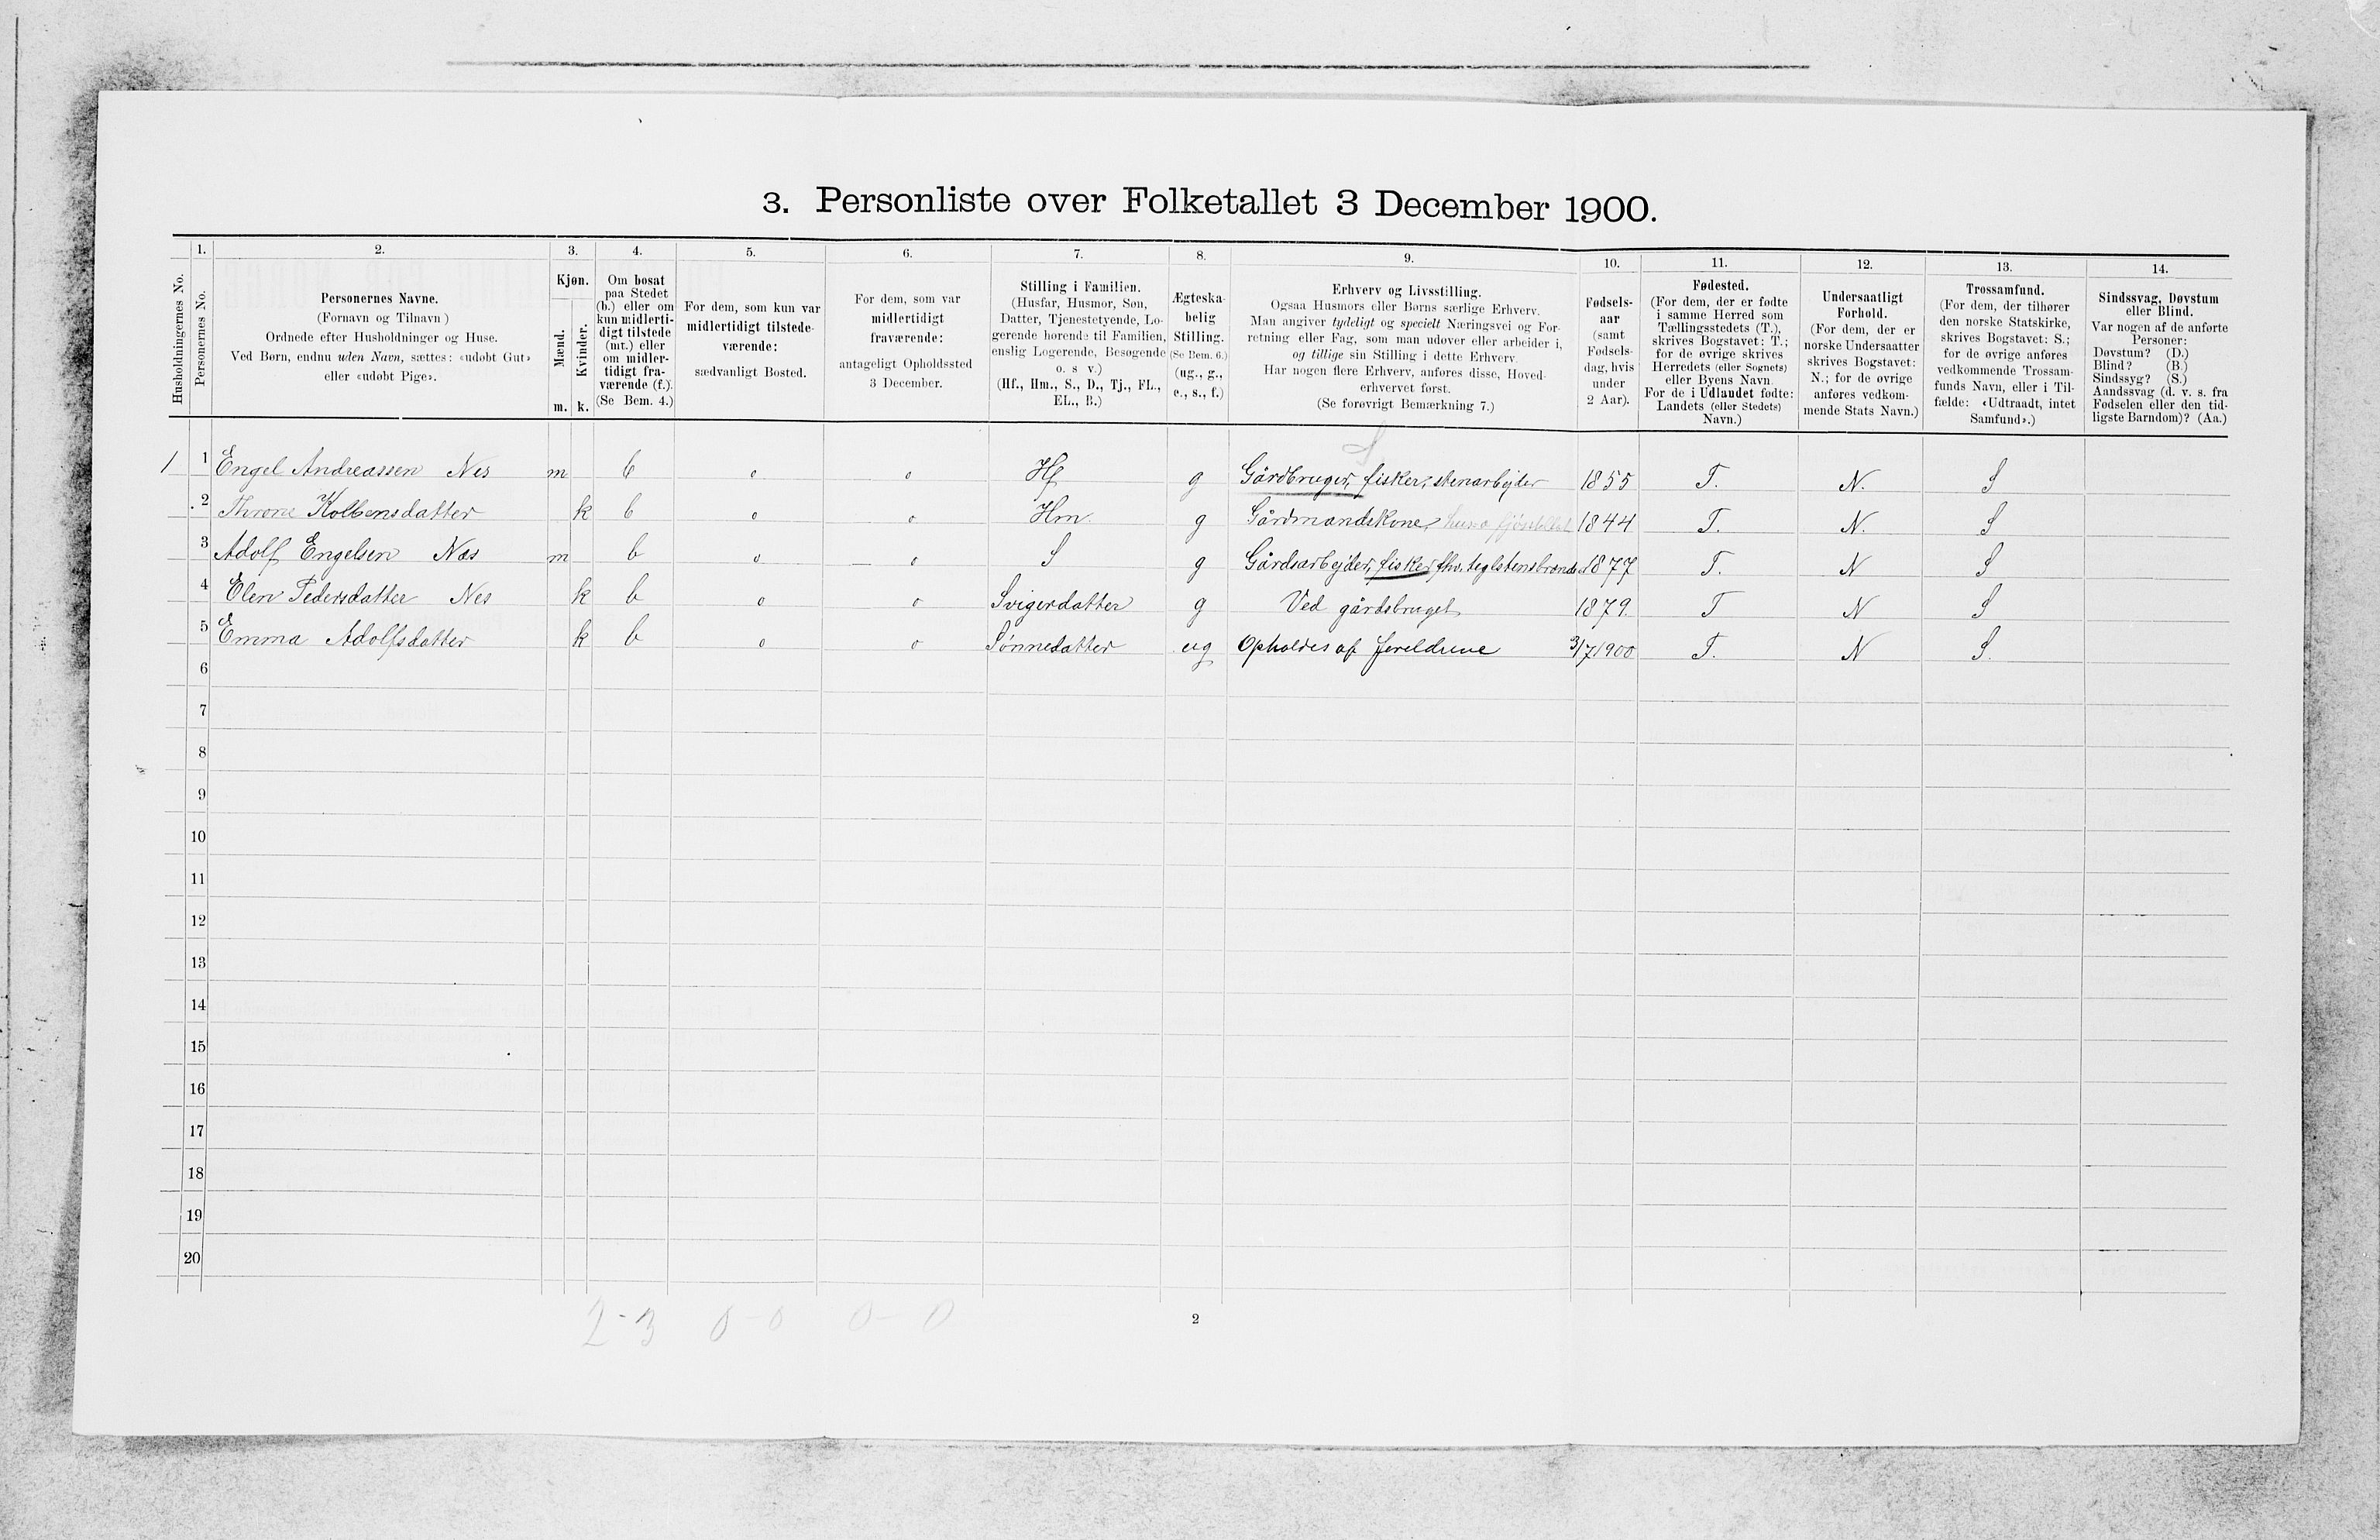 3. Personliste over Folketallet 3 December 1900.
1. 2. 3. 4. 5. 6. 7. 8. 9. 10. 11. 12. 13. 14.
Husholdningernes No.
Personernes No.
Personernes Navne.
(Fornavn og Tilnavn)
Ordnede efter Husholdninger og Huse.
Ved Børn, endnu uden Navn, sættes: «udøbt Gut»
eller «udøbt Pige».
Kjøn.
Mænd.
Kvinder.
m. k.
Om bosat
paa Stedet
(b.) eller om
kun midlerti-
digt tilstede
(mt.) eller
om midler-
tidigt fra-
værende (f.).
(Se Bem. 4.)
For dem, som kun var
midlertidigt tilstede-
værende:
sædvanligt Bosted.
For dem, som var
midlertidigt
fraværende:
antageligt Opholdssted
3 December.
Stilling i Familien.
(Husfar, Husmor, Søn,
Datter, Tjenestetyende, Lo-
gerende hørende til Familien,
enslig Logerende, Besøgende
o. s v.)
(Hf., Hm., S., D., Tj., FL.,
EL., B.)
Ægteska-
belig
Stilling.
(Se Bem. 6.)
(ug., g.,
e., s., f.)
Erhverv og Livsstilling.
Ogsaa Husmors eller Børns særlige Erhverv.
Man angiver tydeligt og specielt Næringsvei og For-
retning eller Fag, som man udøver eller arbeider i,
og tillige sin Stilling i dette Erhverv.
Har nogen flere Erhverv, anføres disse, Hoved-
erhvervet først.
(Se forøvrigt Bemærkning 7.)
Fødsels-
aar
(samt
Fødsels-
dag, hvis
under
2 Aar).
Fødested.
(For dem, der er fødte
i samme Herred som
Tællingsstedets (T.),
skrives Bogstavet: T.;
for de øvrige skrives
Herredets (eller Sognets)
eller Byens Navn.
For de i Udlandet fødte:
Landets (eller Stedets)
Navn.)
Undersaatligt
Forhold.
(For dem, der er
norske Undersaatter
skrives Bogstavet:
N.; for de øvrige
anføres vedkom-
mende Stats Navn.)
Trossamfund.
(For dem, der tilhører
den norske Statskirke,
skrives Bogstavet: S.;
for de øvrige anføres
vedkommende Trossam-
funds Navn, eller i Til-
fælde: «Udtraadt, intet
Samfund».)
Sindssvag, Døvstum
eller Blind.
Var nogen af de anførte
Personer:
Døvstum? (D.)
Blind? (B.)
Sindssyg? (S.)
Aandssvag (d. v. s. fra
Fødselen eller den tid-
ligste Barndom)? (Aa.)
1 1 Engel Andreassen Nes m b o o Hf g Gårdbruger, fisker, stenarbejder 1855 T. N. S
2 Kolbensdatter k b o o Hm. g Gårdmandskone 1844 T. N. S
3 Adolf Engelsen Næs m b o o S g Gårdsarbejder, fisker, fhv. teglstensbrænder 1877 T. N S
4 Elen Pedersdatter Nes k b o o Svigerdatter g Ved gårdsbruget 1879. T N S
5 Emma Adolfsdatter k b o o Sønnedatter ug Opholdes af foreldrene 3/7 1900 T. N S.
6
7
8
9
10
11
12
13
14
15
16
17
18
19
20
2-3 0-0 0-0
2